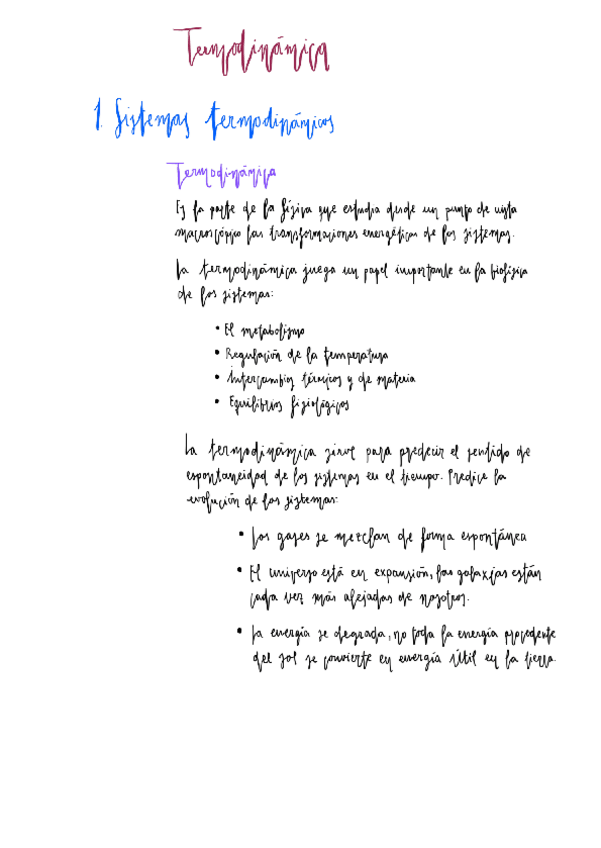 Termodinámica
1. Sistemas termodinámicos
Termodinámica
Es la parte de la física que estudia desde un punto de vista
macroscópico las transformaciones energéticas de los sistemas.
La termodinámica juega un papel importante en la biofísica
de los sistemas:
• El metabolismo
• Regulación de la temperatura
• Intercambios térmicos y de materia
• Equilibrios fisiológicos
La termodinámica sirve para predecir el sentido de
espontaneidad de los sistemas en el tiempo. Predice la
evolución de los sistemas:
• Los gases se mezclan de forma espontánea
• El universo está en expansión, las galaxias están
cada vez más alejadas de nosotros.
• La energía se degrada, no toda la energía procedente
del sol se convierte en energía útil en la tierra.